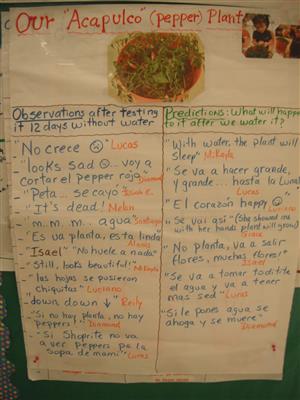 Our "Acapulco" (pepper) Plant
Observations after testing
it 12 days without water
"No crece ☹" Lucas
"looks sad ☹... voy a
cortar el pepper rojo" Diamond
"Peta... se cayó" Isaiah E.
"It's dead! Melan
m.m.m... agua" Santiago
"Es va planta, esta linda"
Alexis
Israel "No huele a nada"
"Still, looks beautiful!" Mikayla
"las hojas se pusieron
chiquitas" Luciano
"down down ↓" Reily
"Si no hay planta, no hay
peppers!" Diamond
"Si Shoprite no va
a ver peppers pa la
sopa de mami" Lucas
Predictions: What will happen
to it after we water it?
"With water, the plant will
sleep" Mikayla
"Se va a hacer grande,
y grande... hasta la Luna!"
Lucas
"El corazón happy ☺
Luciano
"Se vai asi" (She showed me
with her hands plant will grow)
Grace
"No planta, va a salir
flores, muchas flores!"
Israel
"Se va a tomar todítito
el agua y va a tener
mas sed" Lucas
"Si le pones agua se
ahoga y se muere"
Diamond